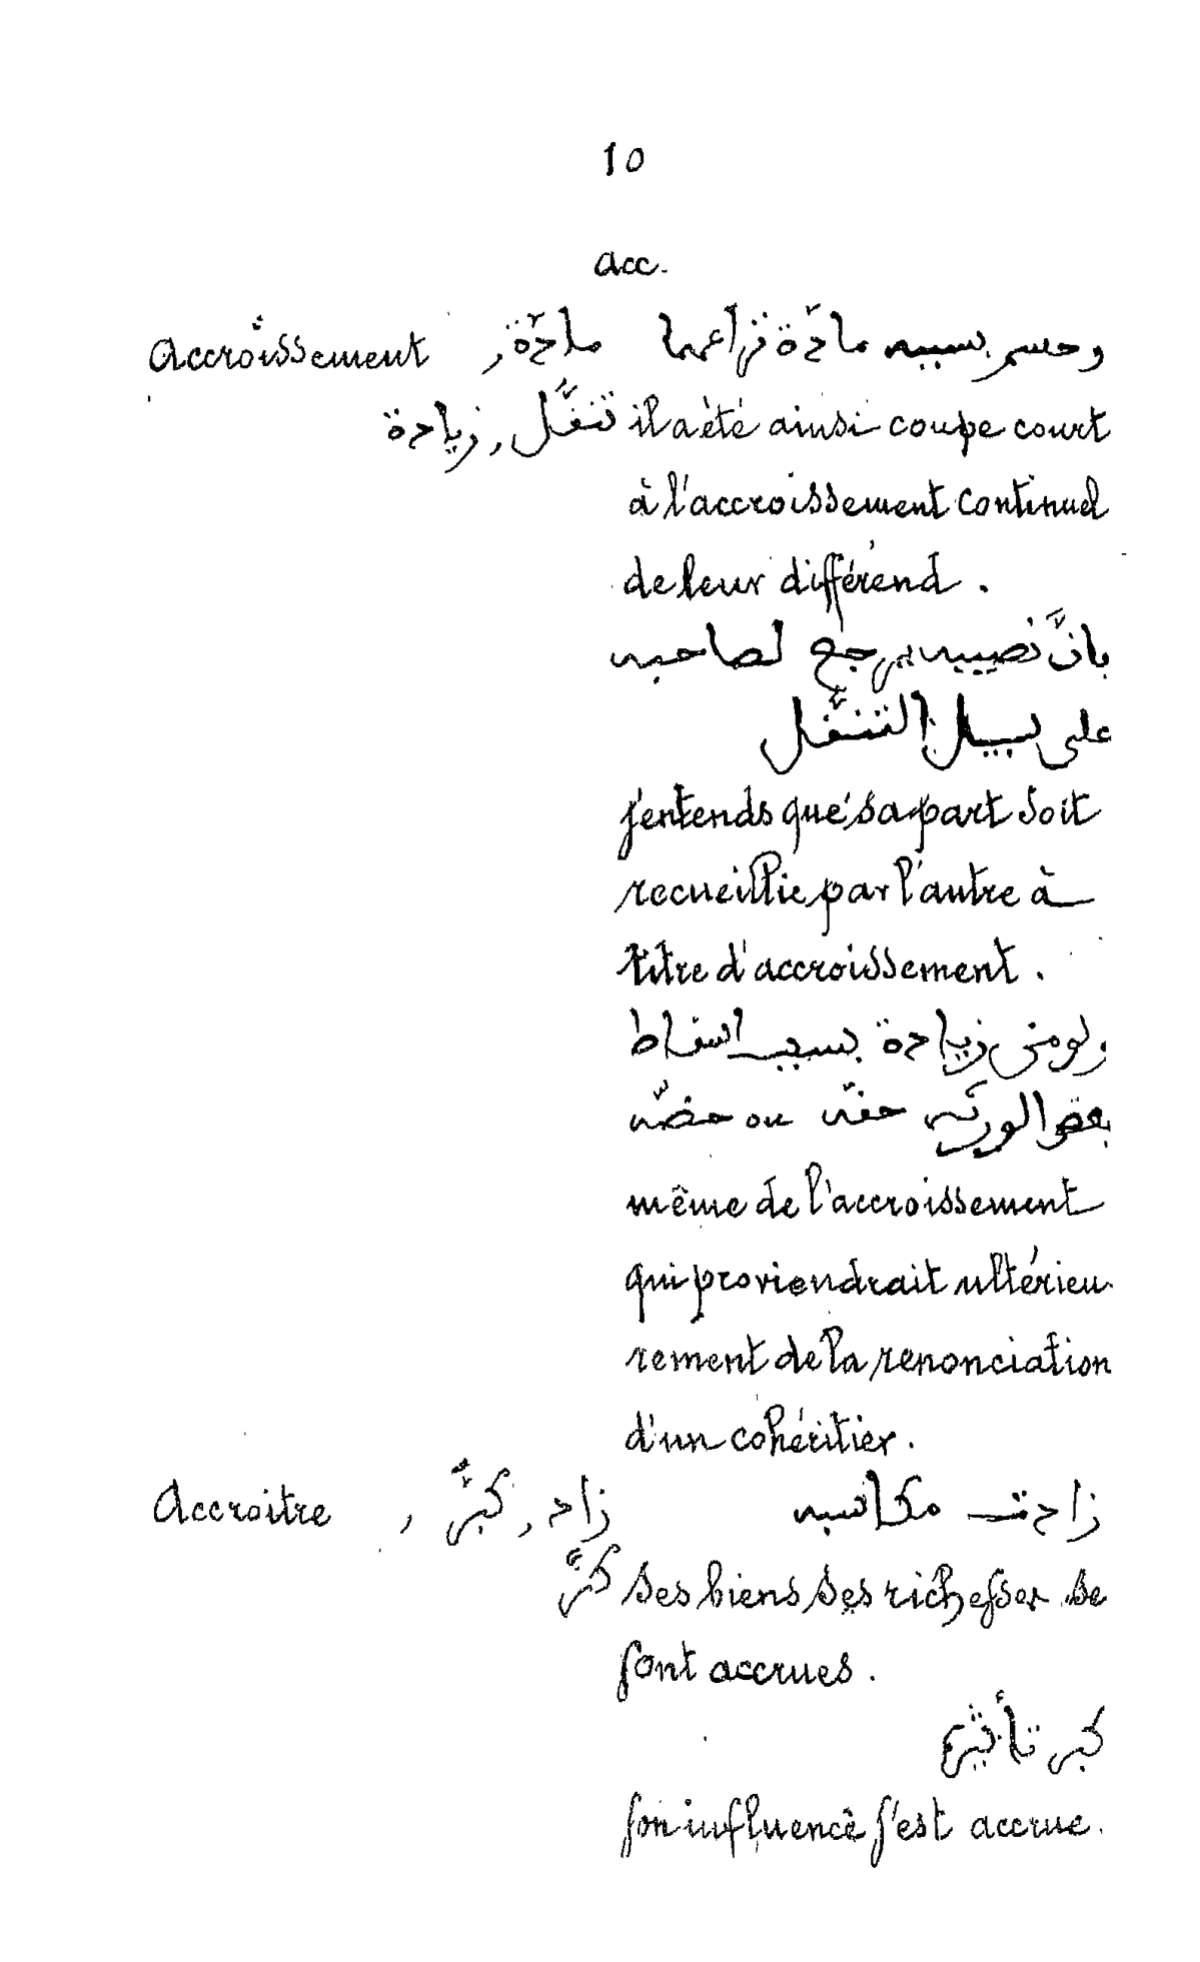 10
acc.
Accroissement مادّة, وحسم بسببه مادّة نزاعهما
تنفّل, زيادة il a été ainsi coupe court
à l'accroissement continuel
de leur différend.
بانّ نصيبه يرجع لصاحبه
على سبيل التنفّل
j'entends que sa part soit
recueillie par l'autre à
titre d'accroissement.
ولو من زيادة بسبب اسقاط
بعض الورثة حقّه ou حصّه
même de l'accroissement
qui proviendrait ultérieu-
rement de la renonciation
d'un cohéritier.
Accroitre , زاد, كبّر زادت مكاسبه
كثّر ses biens ses richesses se
sont accrues.
كبر تأثيره
son influence s'est accrue.